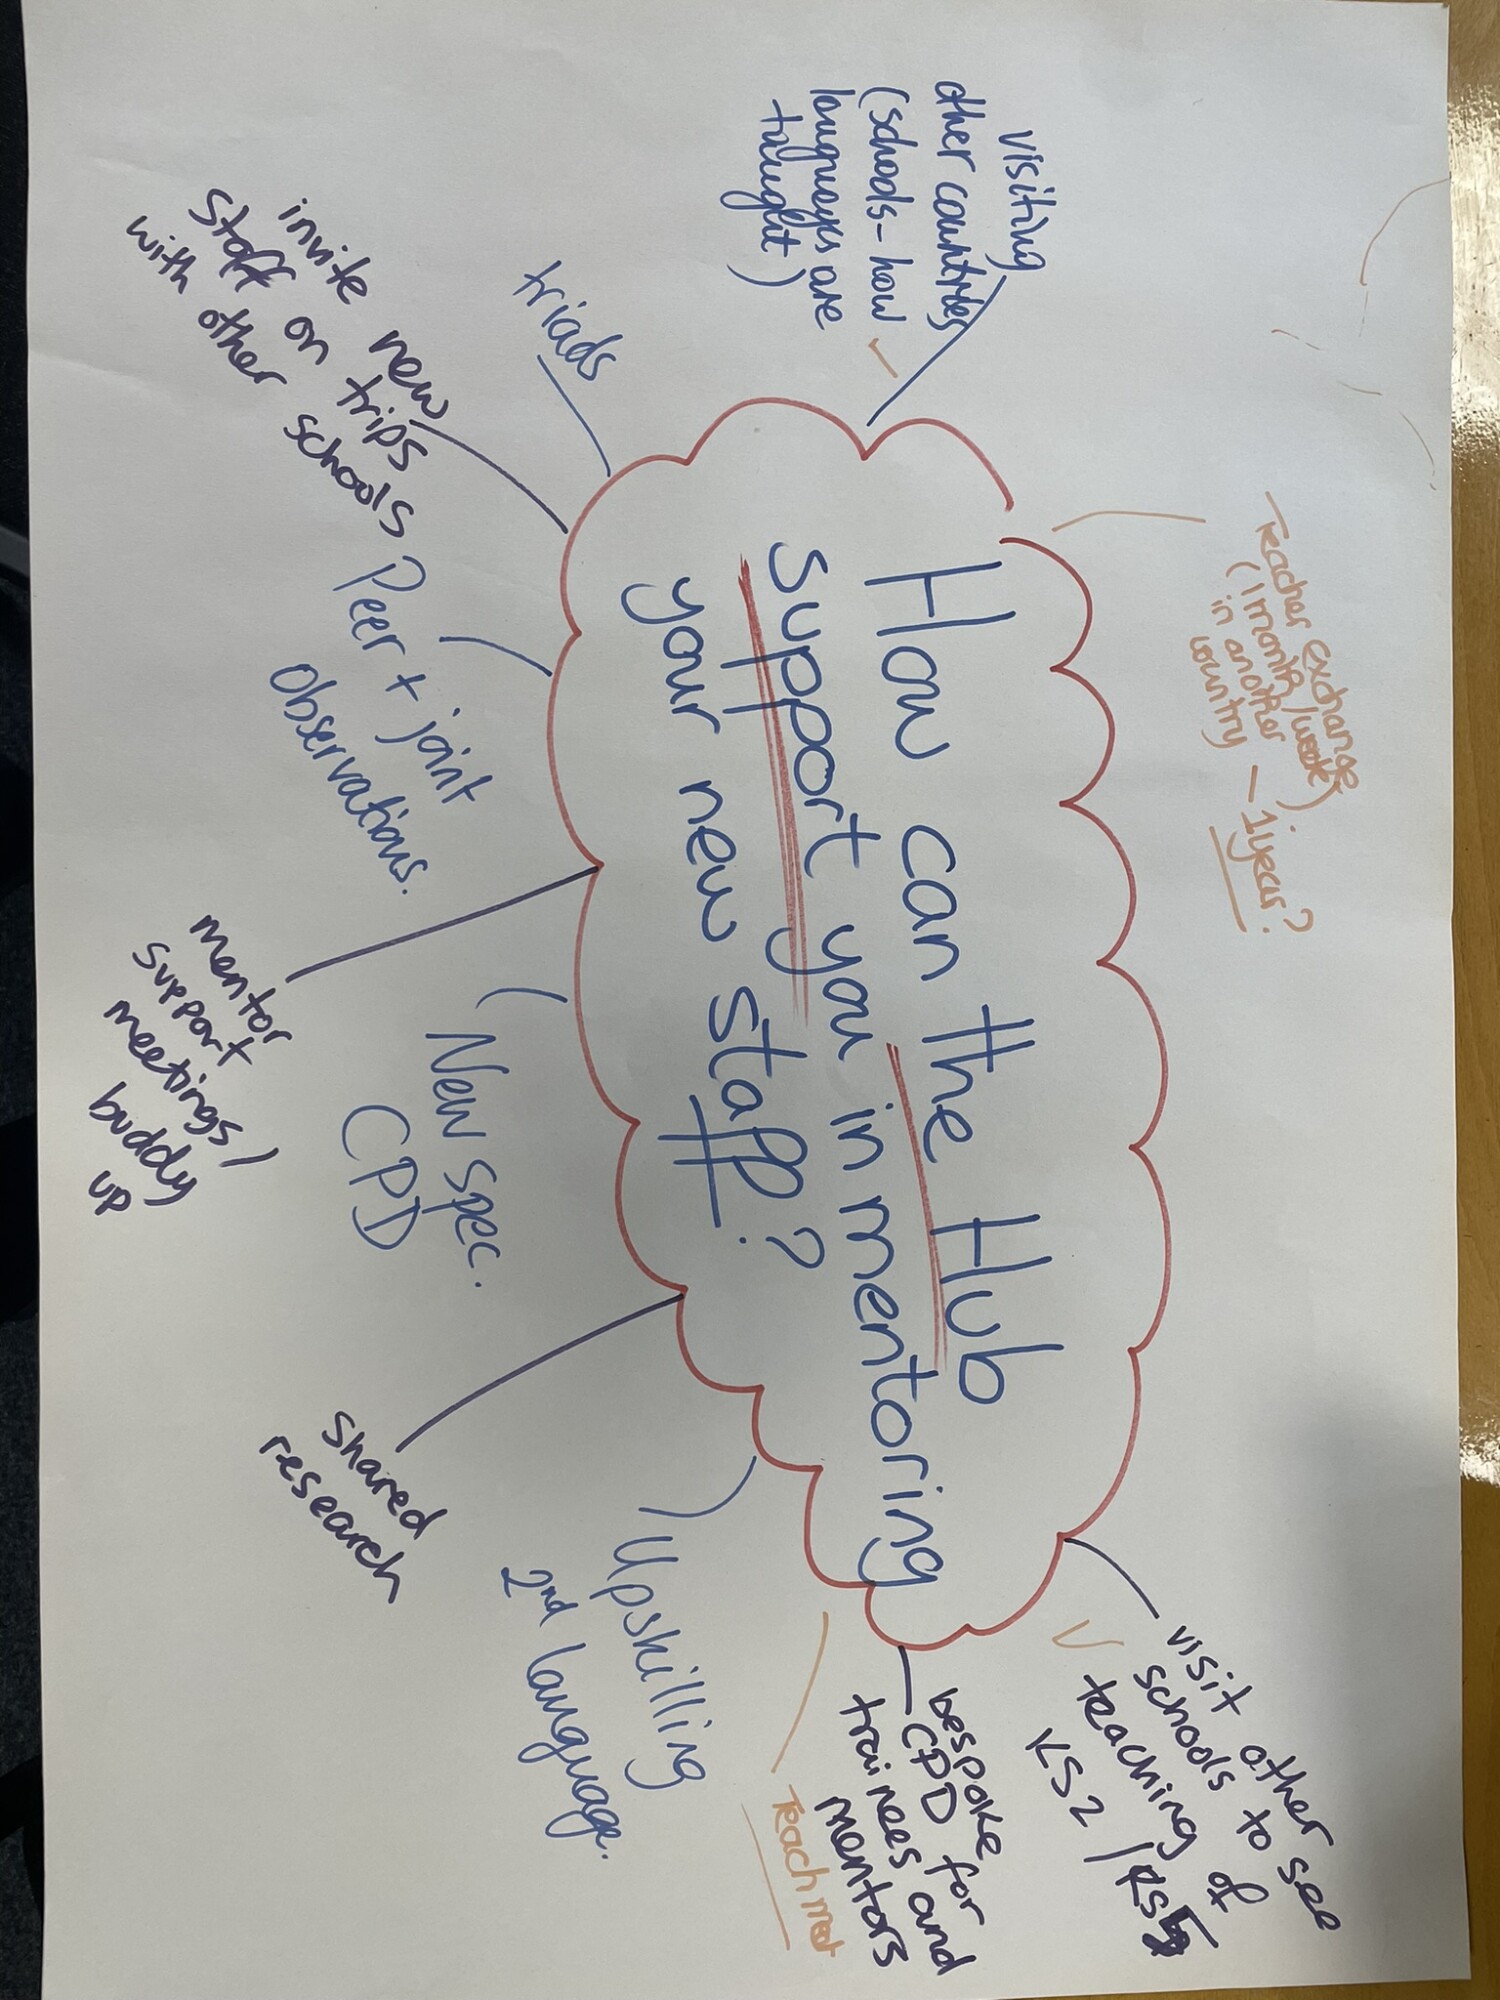 How can the Hub
support you in mentoring
your new staff?
visiting
other countries
(schools - how
languages are
taught)
Teacher exchange
(1 month/week)
in another
country - 1 year?
visit other
schools to see
teaching of
KS2 / KS5
bespoke
CPD for
trainees and
mentors
Teach meet
Upskilling
2nd language.
shared
research
New spec.
CPD
mentor
support
meetings /
buddy
up
Peer + joint
observations.
invite new
staff on trips
with other schools
triads